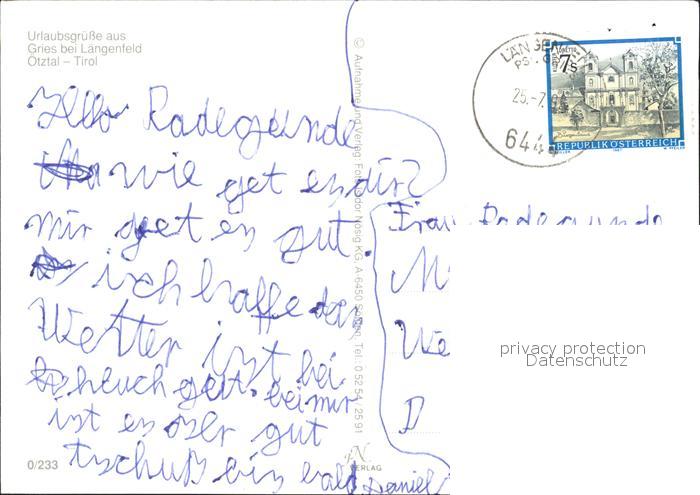 Urlaubsgrüße aus
Gries bei Längenfeld
Ötztal – Tirol
Hallo Radegunde
wie get es dir?
mir get es gut.
ich haffe das
Wetter ist bei
euch gut. bei mir
ist es ser gut
tschuß bis bald Daniel
0/233
© Aufnahme und Verlag: Foto Isidor Nösig KG, A-6450 Sölden, Tel. 05254/2591
VERLAG
25.-7.
644
7 S
REPUBLIK ÖSTERREICH
Frau Radegunde
M
We
D
privacy protection
Datenschutz